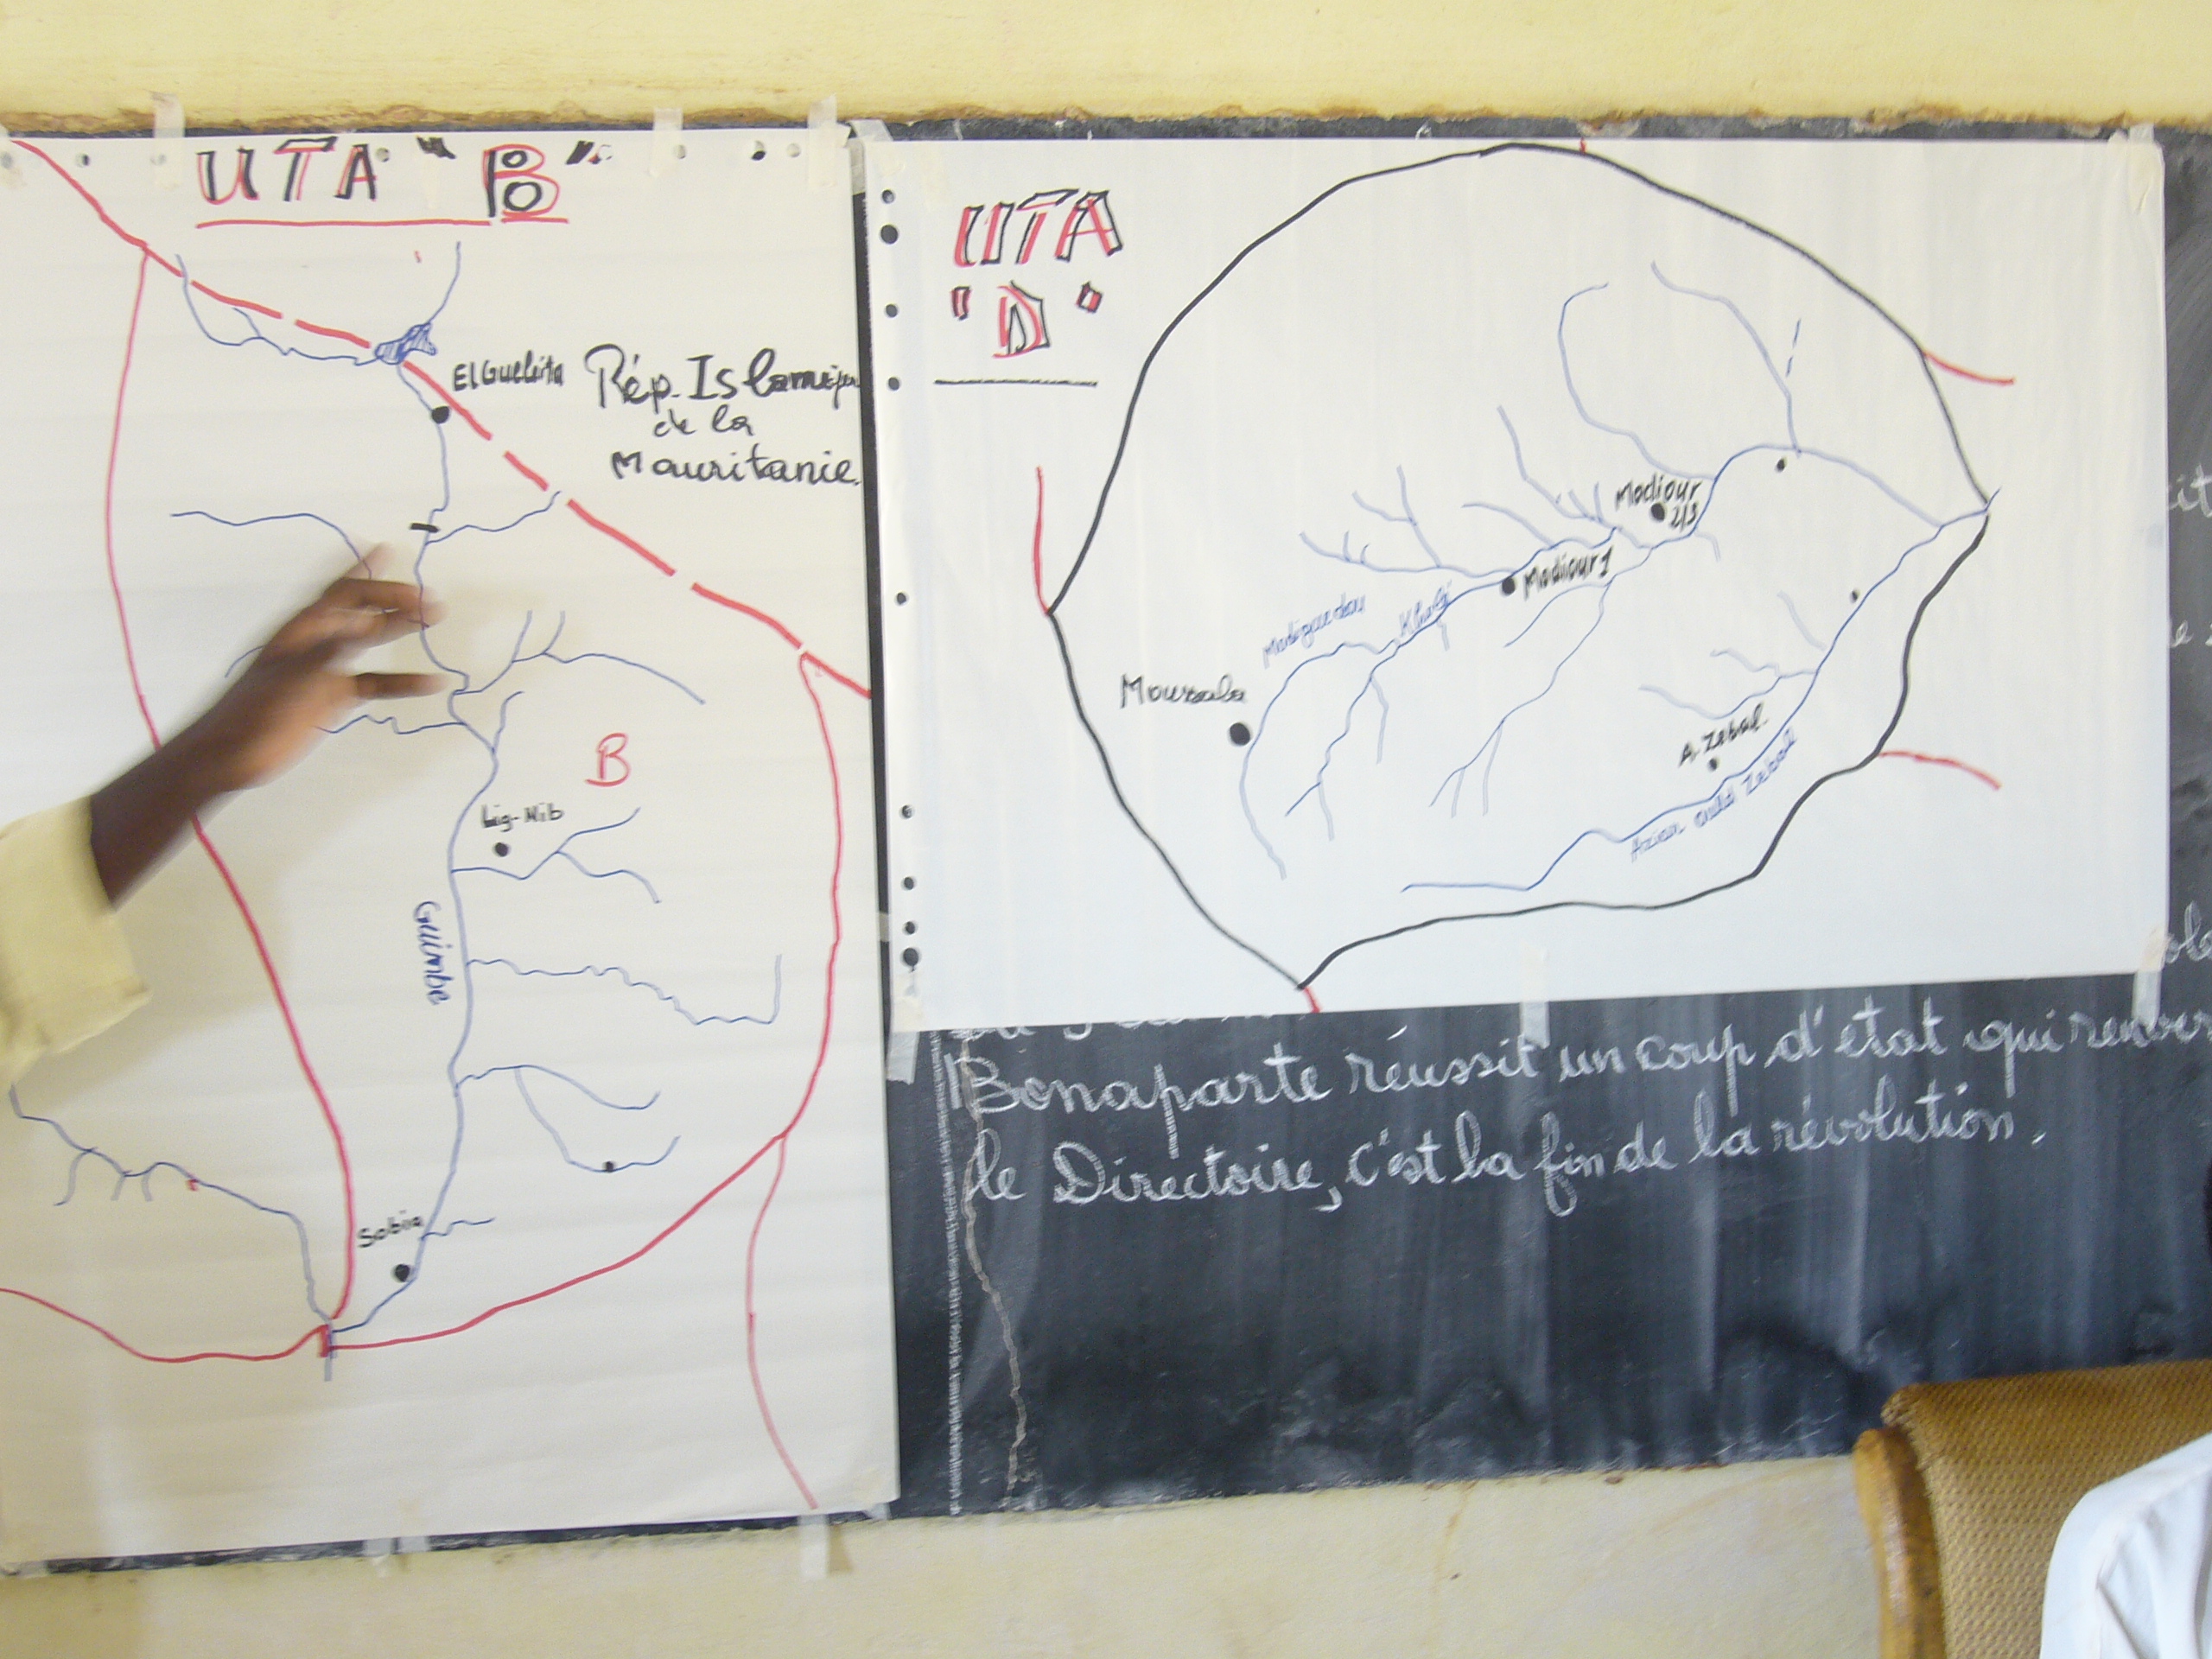 UTA "B"
El Guelita
Rép. Islamique
de la
Mauritanie.
B
Lig-Nib
Guimbe
Sobia
UTA
"D"
Modiour
2/3
Modiour 1
Khalé
Moussala
A. Zebad.
ould Zebad
Bonaparte réussit un coup d'état qui renver
le Directoire, c'est la fin de la révolution.